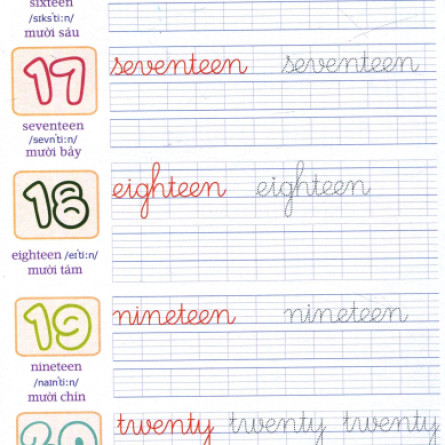 sixteen
/sɪksˈtiːn/
mười sáu
17 seventeen seventeen
seventeen
/sevnˈtiːn/
mười bảy
18 eighteen eighteen
eighteen /eɪˈtiːn/
mười tám
19 nineteen nineteen
nineteen
/naɪnˈtiːn/
mười chín
20 twenty twenty twenty